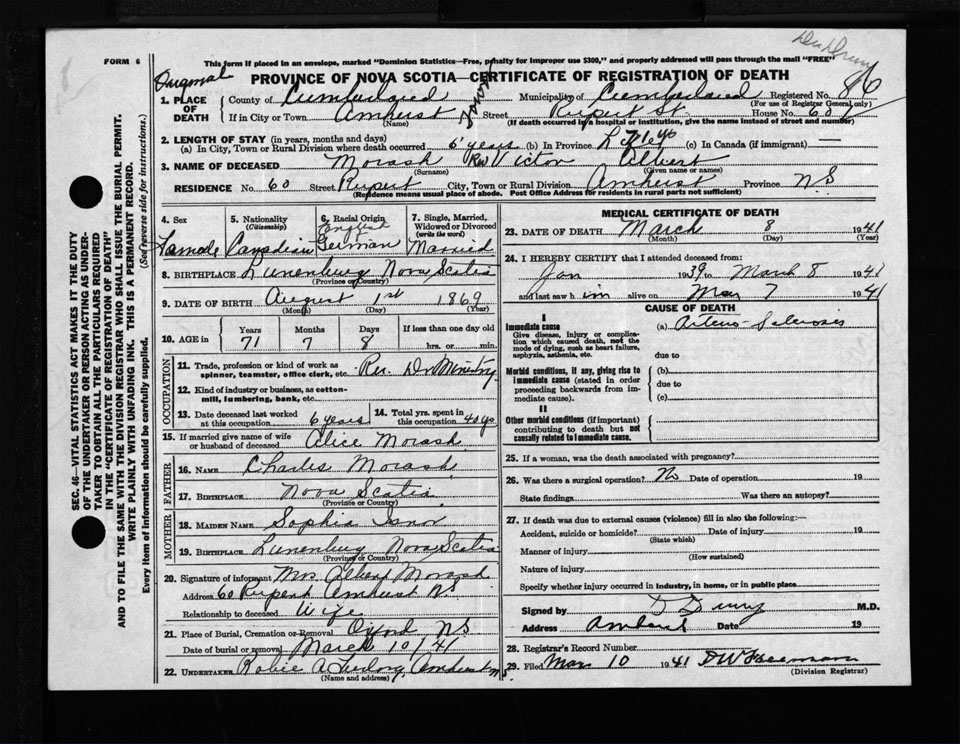 FORM 6
This form if placed in an envelope, marked "Dominion Statistics—Free, penalty for improper use $300," and properly addressed will pass through the mail "FREE"
Original
PROVINCE OF NOVA SCOTIA—CERTIFICATE OF REGISTRATION OF DEATH
Registered No. 86
(For use of Registrar General only)
1. PLACE OF DEATH
County of Cumberland Municipality of Cumberland
If in City or Town Amherst Street Rupert St. House No. 60
(Name) (If death occurred in a hospital or institution, give the name instead of street and number)
2. LENGTH OF STAY (in years, months and days)
(a) In City, Town or Rural Division where death occurred 6 years (b) In Province Life (c) In Canada (if immigrant)
3. NAME OF DECEASED Morash Rev Victor Albert
(Surname) (Given name or names)
RESIDENCE No. 60 Street Rupert City, Town or Rural Division Amherst Province N S
(Residence means usual place of abode. Post Office Address for residents in rural parts not sufficient)
4. Sex
5. Nationality (Citizenship) Canadian
6. Racial Origin English German
7. Single, Married, Widowed or Divorced (write the word) Married
8. BIRTHPLACE Lunenburg Nova Scotia
(Province or Country)
9. DATE OF BIRTH August 1st 1869
(Month) (Day) (Year)
10. AGE in Years Months Days If less than one day
71 7 8 hrs. or min.
OCCUPATION
11. Trade, profession or kind of work as spinner, teamster, office clerk, etc. Rev. In Ministry
12. Kind of industry or business, as cotton-mill, lumbering, bank, etc.
13. Date deceased last worked at this occupation 6 years
14. Total yrs. spent in this occupation 40 yrs
15. If married give name of wife or husband of deceased Alice Morash
FATHER
16. NAME Charles Morash
17. BIRTHPLACE Nova Scotia
(Province or Country)
MOTHER
18. MAIDEN NAME Sophia
19. BIRTHPLACE Lunenburg Nova Scotia
(Province or Country)
20. Signature of informant Mrs Albert Morash
Address 60 Rupert Amherst N S
Relationship to deceased Wife
21. Place of Burial, Cremation or Removal Oxford N S
Date of burial or removal March 10/41
22. UNDERTAKER Robie A Furlong, Amherst N S.
(Name and address)
MEDICAL CERTIFICATE OF DEATH
23. DATE OF DEATH March 8 1941
(Month) (Day) (Year)
24. I HEREBY CERTIFY that I attended deceased from:
Jan 1939 to March 8 1941
and last saw h im alive on Mar 7 1941
CAUSE OF DEATH
I
Immediate cause
Give disease, injury or complication which caused death, not the mode of dying, such as heart failure, asphyxia, asthenia, etc.
(a) Arterio-Sclerosis
due to
Morbid conditions, if any, giving rise to immediate cause (stated in order proceeding backwards from immediate cause).
(b)
due to
(c)
II
Other morbid conditions (if important) contributing to death but not causally related to immediate cause.
25. If a woman, was the death associated with pregnancy?
26. Was there a surgical operation? No Date of operation 19
State findings Was there an autopsy?
27. If death was due to external causes (violence) fill in also the following:—
Accident, suicide or homicide? Date of injury 19
(State which)
Manner of injury
(How sustained)
Nature of injury
Specify whether injury occurred in industry, in home, or in public place
Signed by M.D.
Address Amherst Date 19
28. Registrar's Record Number
29. Filed Mar 10 1941
(Division Registrar)
SEC. 46—VITAL STATISTICS ACT MAKES IT THE DUTY
OF THE UNDERTAKER OR PERSON ACTING AS UNDER-
TAKER TO OBTAIN ALL THE PARTICULARS REQUIRED
IN THE "CERTIFICATE OF REGISTRATION OF DEATH"
AND TO FILE THE SAME WITH THE DIVISION REGISTRAR WHO SHALL ISSUE THE BURIAL PERMIT.
WRITE PLAINLY WITH UNFADING INK. THIS IS A PERMANENT RECORD.
Every item of Information should be carefully supplied. (See reverse side for instructions.)